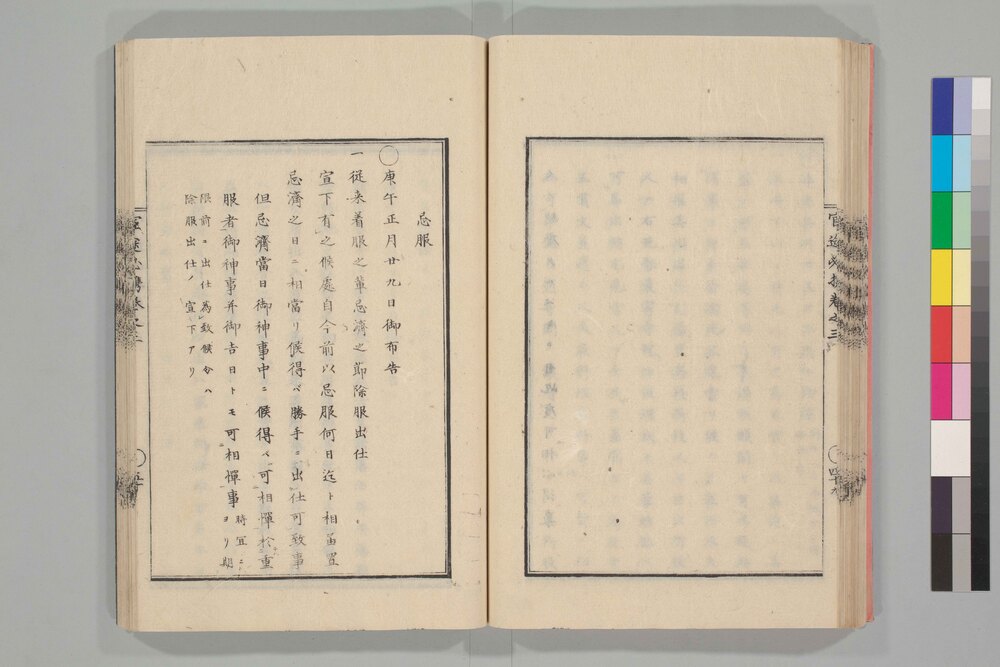 忌服
○庚午正月廿九日御布告
一従来着服之輩忌濟之節除服出仕
宣下有之候處自今前以忌服何日迄ト相届置
忌濟之日ニ相當リ候得バ勝手ニ出仕可致事
但忌濟當日御神事中ニ候得バ可相憚於重
服者御神事并御吉日トモ可相憚事
時宜ニヨリ期
限前ニ出仕為致候分ハ
除服出仕ノ宣下アリ